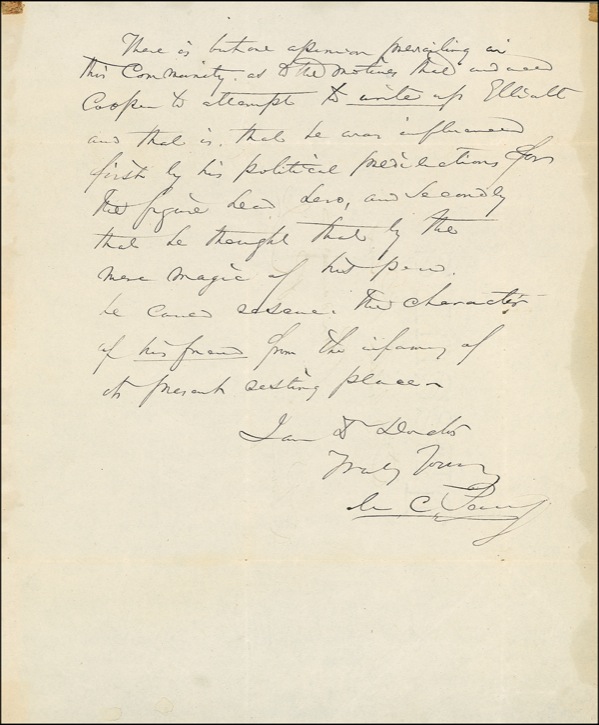 There is but one opinion prevailing in
this Community. as to the motives that induced
Cooper to attempt to write up Elliott
and that is. that he was influenced
first by his political predilections for
the figure head hero, and Secondly
that he thought that by the
mere magic of his pen.
he could rescue. the character
of his friend from the infamy of
its present resting place
I am Dr Doctor
Truly Yours
C. Perry